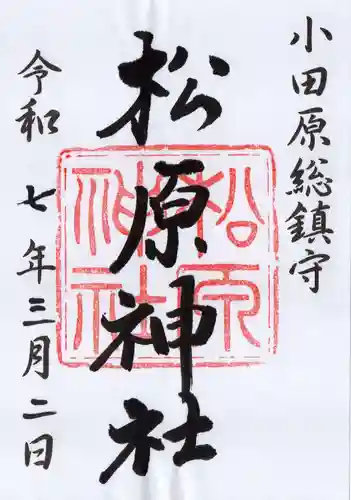 小田原総鎮守
松原神社
松原神社
令和七年三月二日